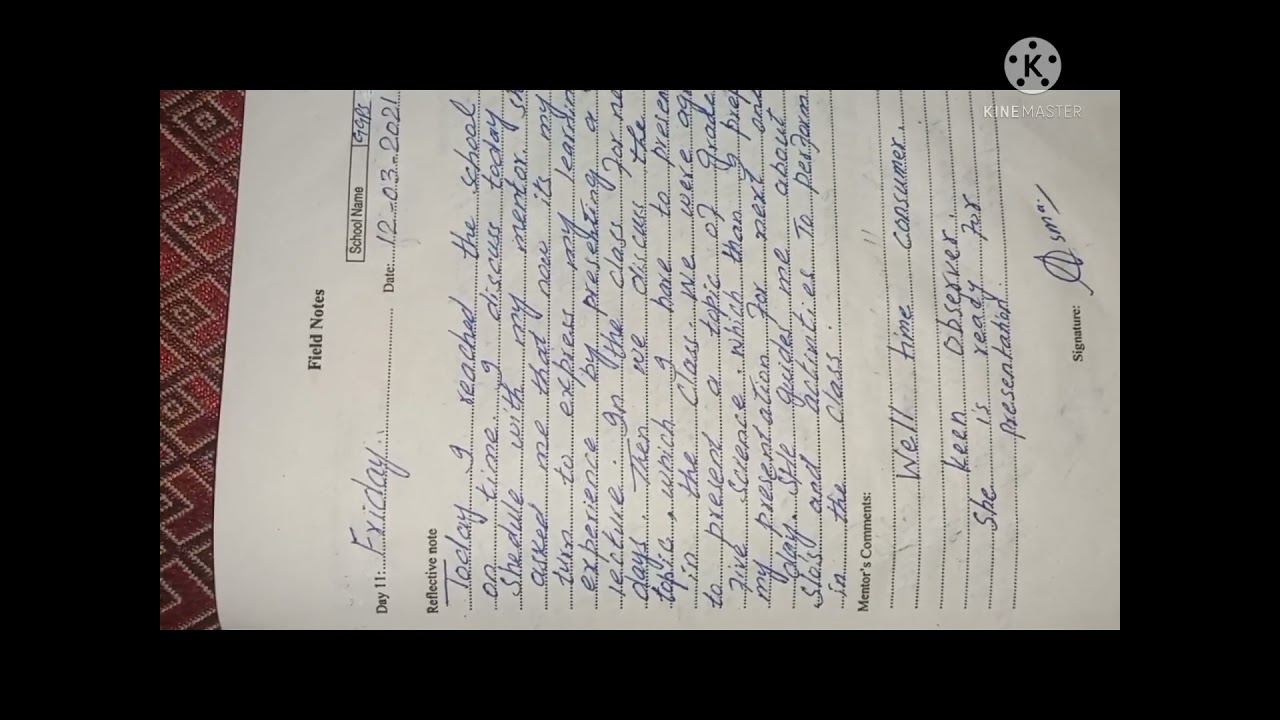 Field Notes
School Name GGPS
Day 11: Friday Date: 12-03-2021
Reflective note
Today I reached the school
on time. I discuss today
shedule with my mentor. sh
asked me that now its my
turn to express my learnin
experience by presenting a
lecture. In the class for ne
days. Then we discus the
topic, which I have to presen
in the class. We were agr
to present a topic of grade
five science. which than I prep
my presentation for next one
day. She guides me about
slos and activities to perform
in the class.
Mentor's Comments:
Well time consumer.
keen observer.
She is ready for
presentation.
Signature: Asma
KINEMASTER